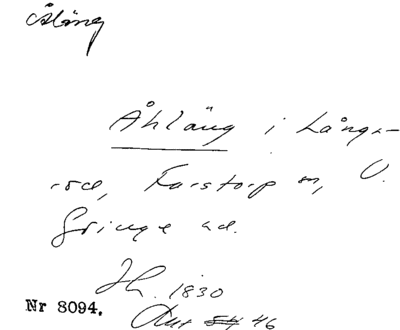 Åläng
Åhläng i Långe-
röd, Farstorp sn, V.
Göinge hd.
Jh. 1830
Nr 8094. Akt 54 46